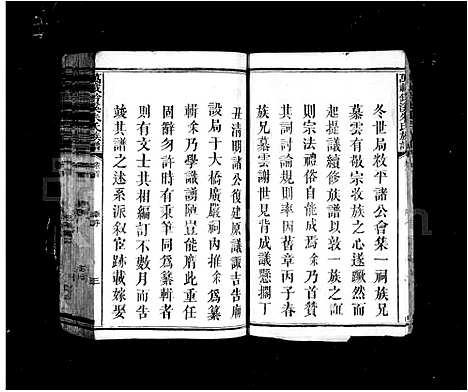 冬世局敉平諸公會集一祠族兄
慕雲有敬宗收族之心遂蹶然而
起提議續修族譜以敦一族之誼
則宗法禮俗自能成焉余乃首贊
其詞討論規則率因舊章丙子春
族兄慕雲謝世見背成議懸擱丁
丑清明諸公復建原議諏吉告廟
設局于大橋廣嚴祠內推余為纂
輯余乃學識譾陋豈能膺此重任
固辭勿許時有秉筆同為纂輯者
則有文士其相編訂不數月而告
竣其譜之述系派叙宦跡載嫁娶